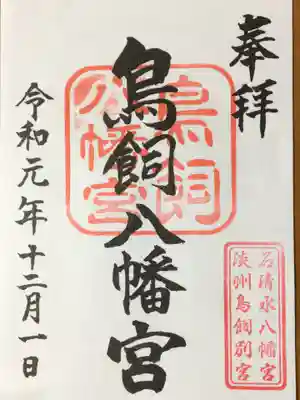 奉拝
鳥飼八幡宮
令和元年十二月一日
鳥飼
八幡宮
石清水八幡宮
淡州鳥飼別宮